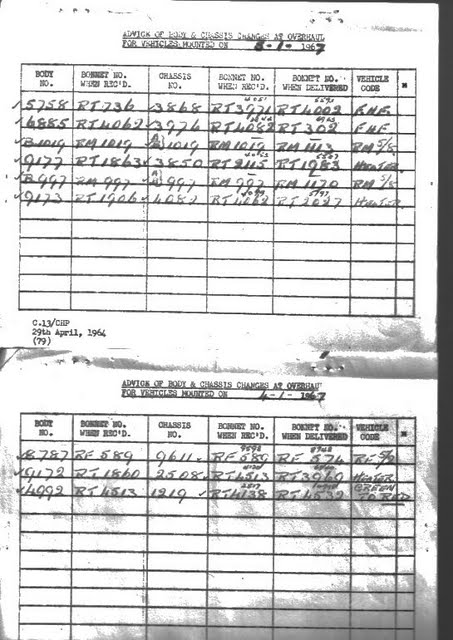 ADVICE OF BODY & CHASSIS CHANGES AT OVERHAUL
FOR VEHICLES MOUNTED ON 5-1-1967
BODY NO. BONNET NO. WHEN REC'D. CHASSIS NO. BONNET NO. WHEN REC'D. BONNET NO. WHEN DELIVERED VEHICLE CODE
✓5758 RT736 ✓3868 RT3971 RT4002
✓6885 RT4062 ✓3974 RT4082 RT302
✓B1019 RM1019 1019 RM1019 RM1113 RM 5/8
✓9177 RT1863 ✓3850 RT2115 RT1983 HEATER
✓B997 RM997 997 RM997 RM1170 RM 5/8
✓9173 RT1906 ✓4082 RT4062 RT2027 HEATER
C.13/CHP
29th April, 1964
(79)
ADVICE OF BODY & CHASSIS CHANGES AT OVERHAUL
FOR VEHICLES MOUNTED ON 4-1-1967
BODY NO. BONNET NO. WHEN REC'D. CHASSIS NO. BONNET NO. WHEN REC'D. BONNET NO. WHEN DELIVERED VEHICLE CODE
8787 RF589 9611 RF589 RF574
✓9172 RT1860 2508 RT4513 RT3969 HEATER
✓4992 RT4513 1219 RT4138 RT4532 GREEN TO RED